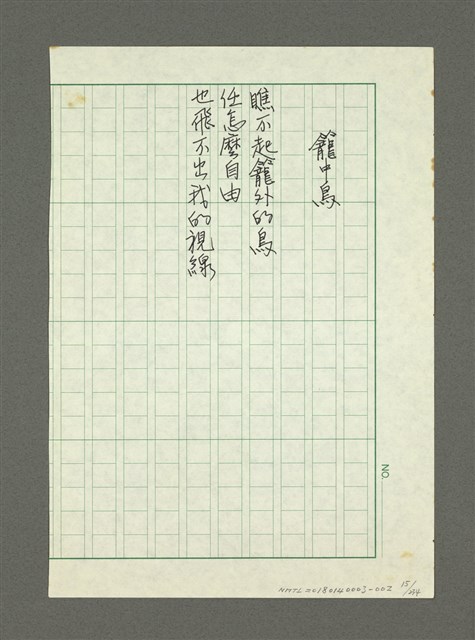 籠中鳥
瞧不起籠外的鳥
任怎麼自由
也飛不出我的視線
NO.
NMTL20180140003-002
15/244